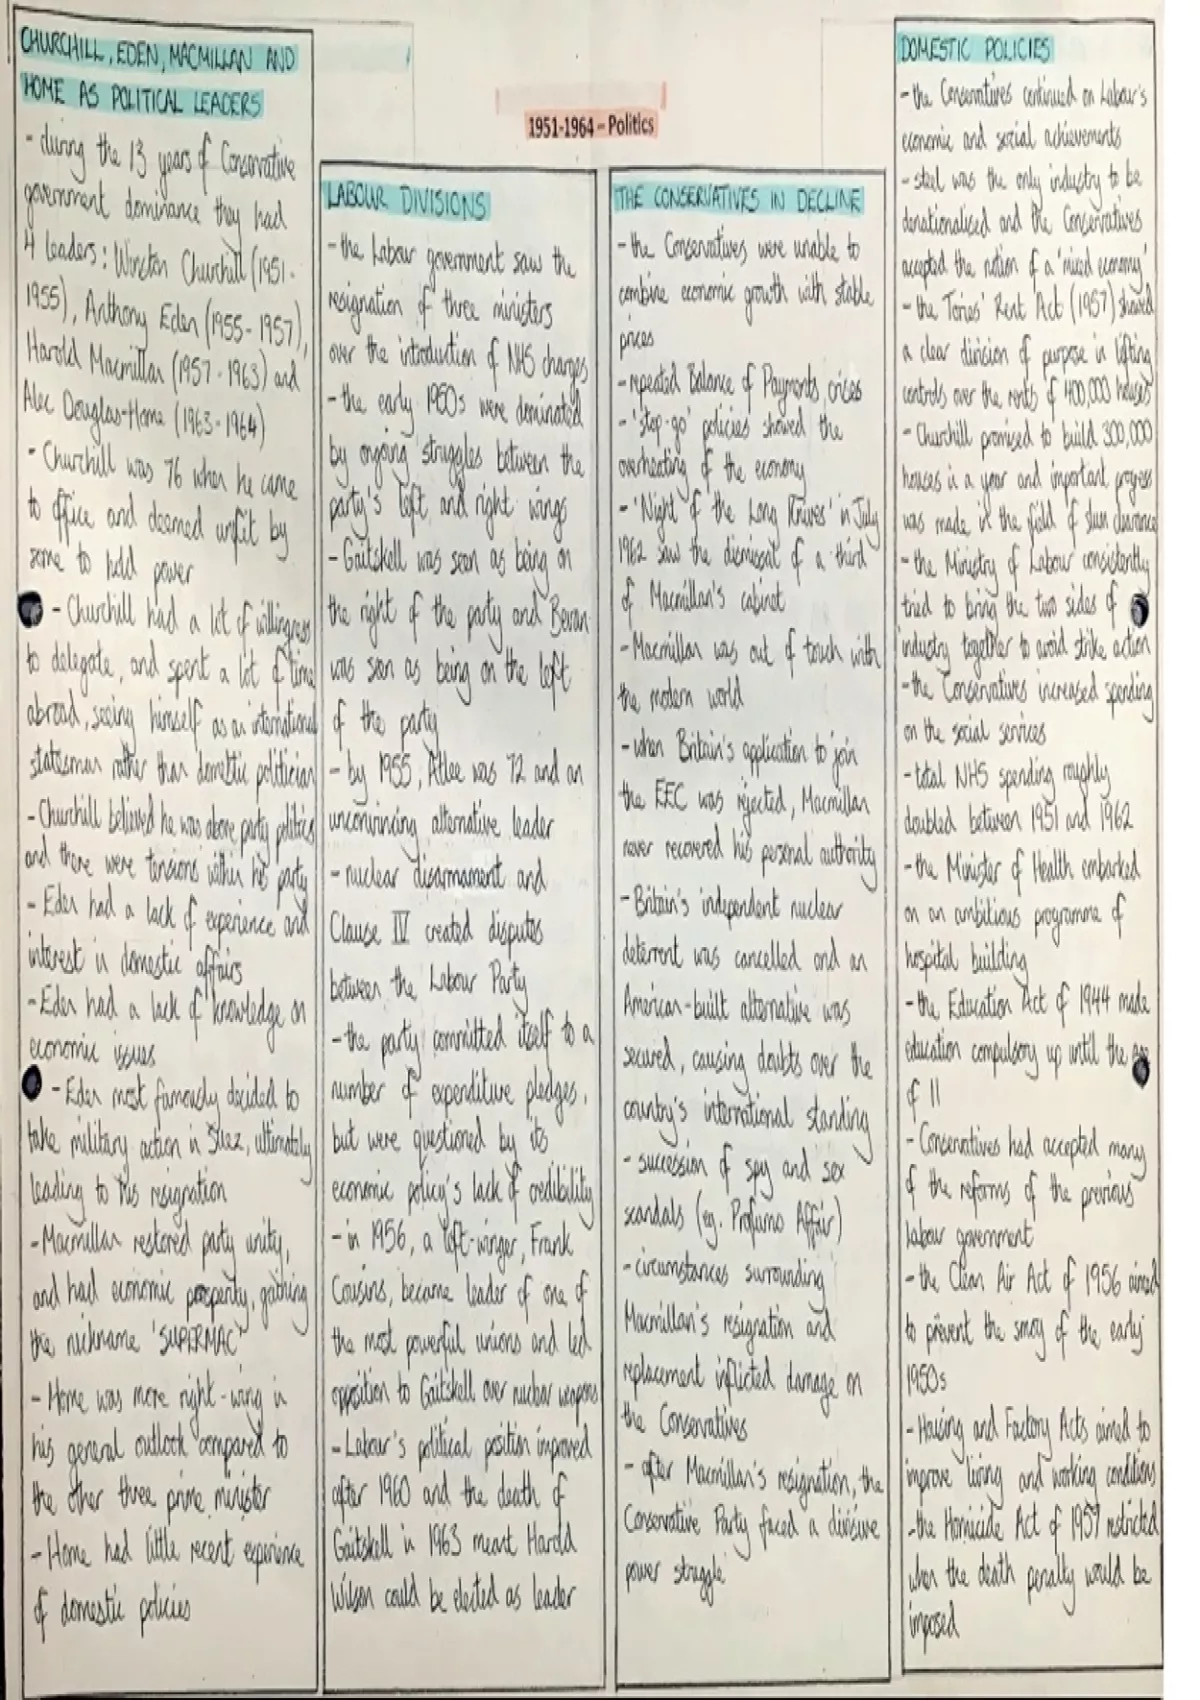 1951-1964 - Politics
CHURCHILL, EDEN, MACMILLAN AND
HOME AS POLITICAL LEADERS
- during the 13 years of Conservative
government dominance they had
4 leaders: Winston Churchill (1951-
1955), Anthony Eden (1955-1957),
Harold Macmillan (1957-1963) and
Alec Douglas-Home (1963-1964)
- Churchill was 76 when he came
to office and deemed unfit by
some to hold power
- Churchill had a lot of willingness
to delegate, and spent a lot of time
abroad, seeing himself as an international
statesman rather than domestic politician
- Churchill believed he was above party politics
and there were tensions within his party
- Eden had a lack of experience and
interest in domestic affairs
- Eden had a lack of knowledge on
economic issues
- Eden most famously decided to
take military action in Suez, ultimately
leading to his resignation
- Macmillan restored party unity,
and had economic prosperity, gaining
the nickname 'SUPERMAC'
- Home was more right-wing in
his general outlook compared to
the other three prime minister
- Home had little recent experience
of domestic policies
LABOUR DIVISIONS
- the Labour government saw the
resignation of three ministers
over the introduction of NHS charges
- the early 1950s were dominated
by ongoing struggles between the
party's left and right wings
- Gaitskell was seen as being on
the right of the party and Bevan
was seen as being on the left
of the party
- by 1955, Atlee was 72 and an
unconvincing alternative leader
- nuclear disarmament and
Clause IV created disputes
between the Labour Party
- the party committed itself to a
number of expenditure pledges,
but were questioned by its
economic policy's lack of credibility
- in 1956, a left-winger, Frank
Cousins, became leader of one of
the most powerful unions and led
opposition to Gaitskell over nuclear weapons
- Labour's political position improved
after 1960 and the death of
Gaitskell in 1963 meant Harold
Wilson could be elected as leader
THE CONSERVATIVES IN DECLINE
- the Conservatives were unable to
combine economic growth with stable
prices
- repeated Balance of Payments crises
- 'stop-go' policies showed the
overheating of the economy
- 'Night of the Long Knives' in July
1962 saw the dismissal of a third
of Macmillan's cabinet
- Macmillan was out of touch with
the modern world
- when Britain's application to join
the EEC was rejected, Macmillan
never recovered his personal authority
- Britain's independent nuclear
deterrent was cancelled and an
American-built alternative was
secured, causing doubts over the
country's international standing
- succession of spy and sex
scandals (eg. Profumo Affair)
- circumstances surrounding
Macmillan's resignation and
replacement inflicted damage on
the Conservatives
- after Macmillan's resignation, the
Conservative Party faced a divisive
power struggle
DOMESTIC POLICIES
- the Conservatives continued on Labour's
economic and social achievements
- steel was the only industry to be
denationalised and the Conservatives
accepted the notion of a 'mixed economy'
- the Tories' Rent Act (1957) showed
a clear division of purpose in lifting
controls over the rents of 400,000 houses
- Churchill promised to build 300,000
houses in a year and important progress
was made in the field of slum clearance
- the Ministry of Labour consistently
tried to bring the two sides of
industry together to avoid strike action
- the Conservatives increased spending
on the social services
- total NHS spending roughly
doubled between 1951 and 1962
- the Minister of Health embarked
on an ambitious programme of
hospital building
- the Education Act of 1944 made
education compulsory up until the age
of 11
- Conservatives had accepted many
of the reforms of the previous
labour government
- the Clean Air Act of 1956 aimed
to prevent the smog of the early
1950s
- Housing and Factory Acts aimed to
improve living and working conditions
- the Homicide Act of 1957 restricted
when the death penalty would be
imposed